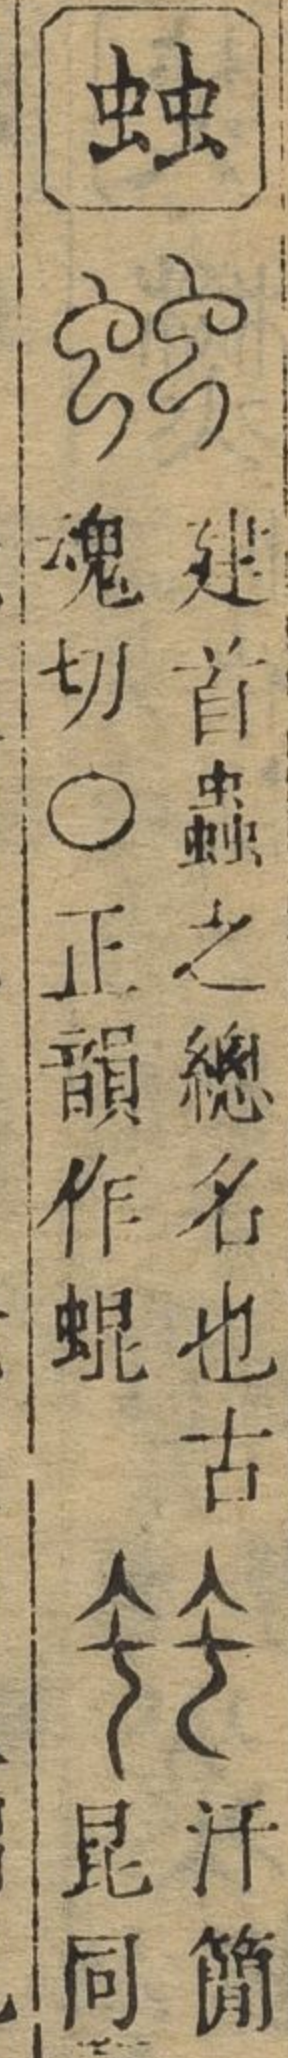 䖵
建首蟲之總名也古
魂切○正韻作蜫
汗簡
昆同